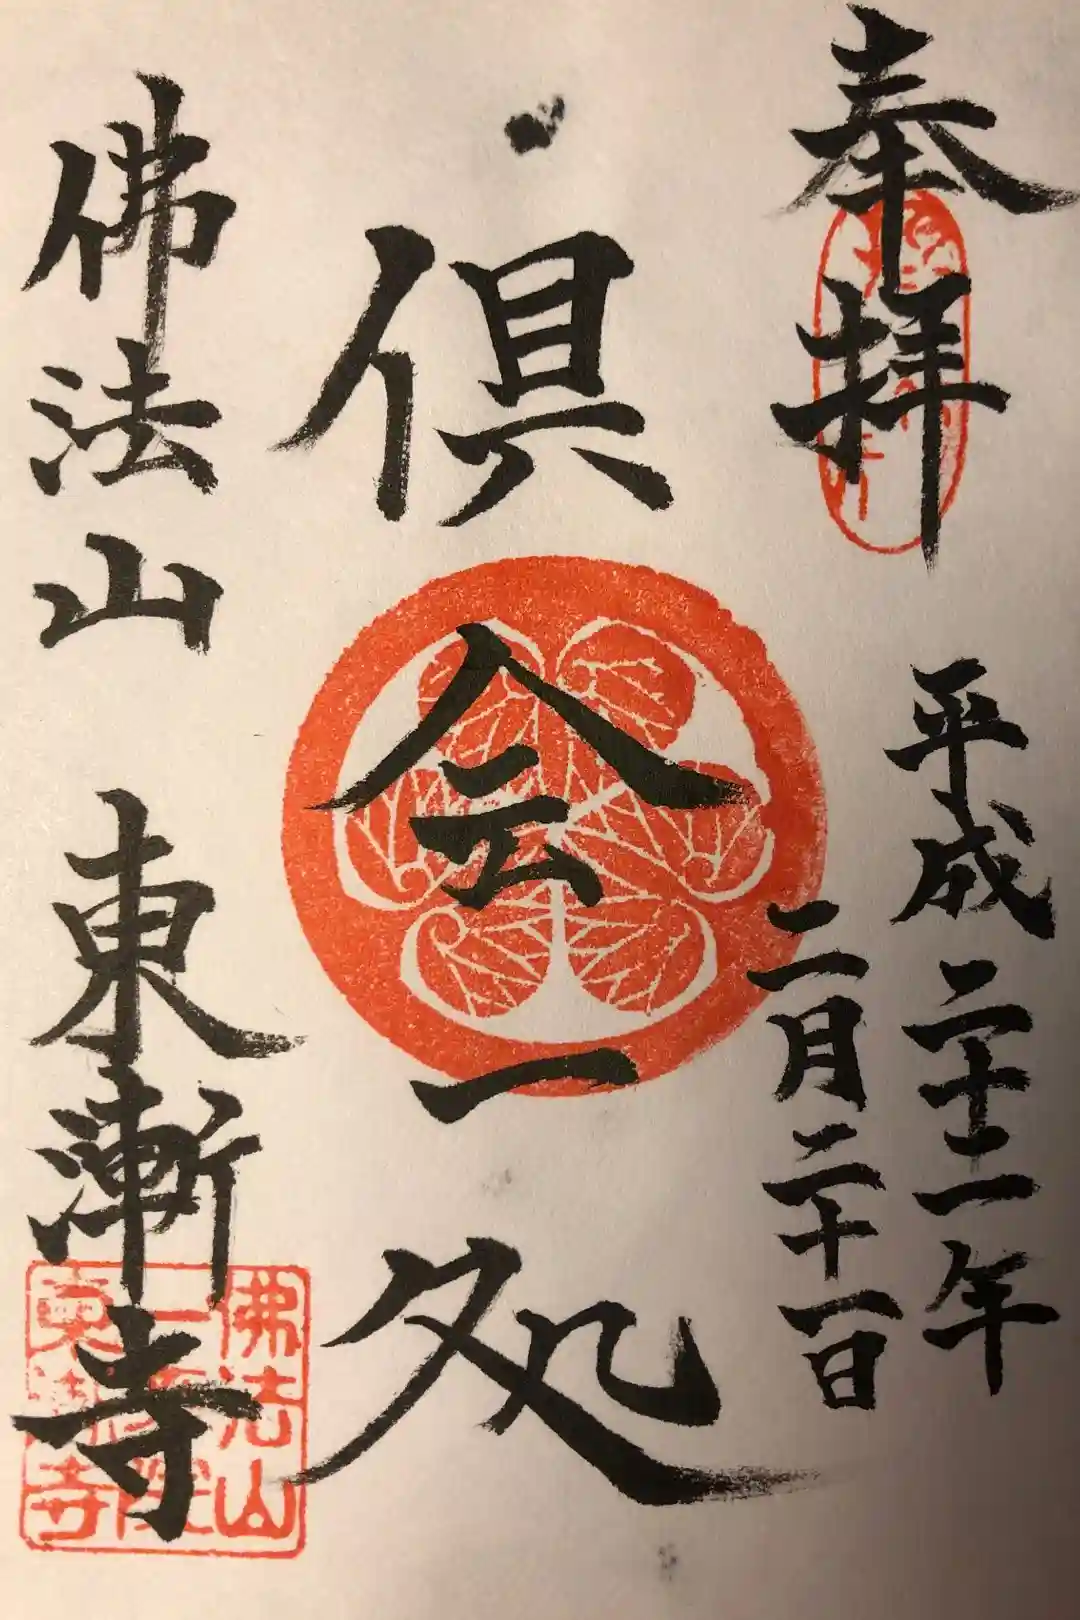 奉拝
平成二十二年
二月二十一日
倶会一処
佛法山
東漸寺
佛法山
東漸寺